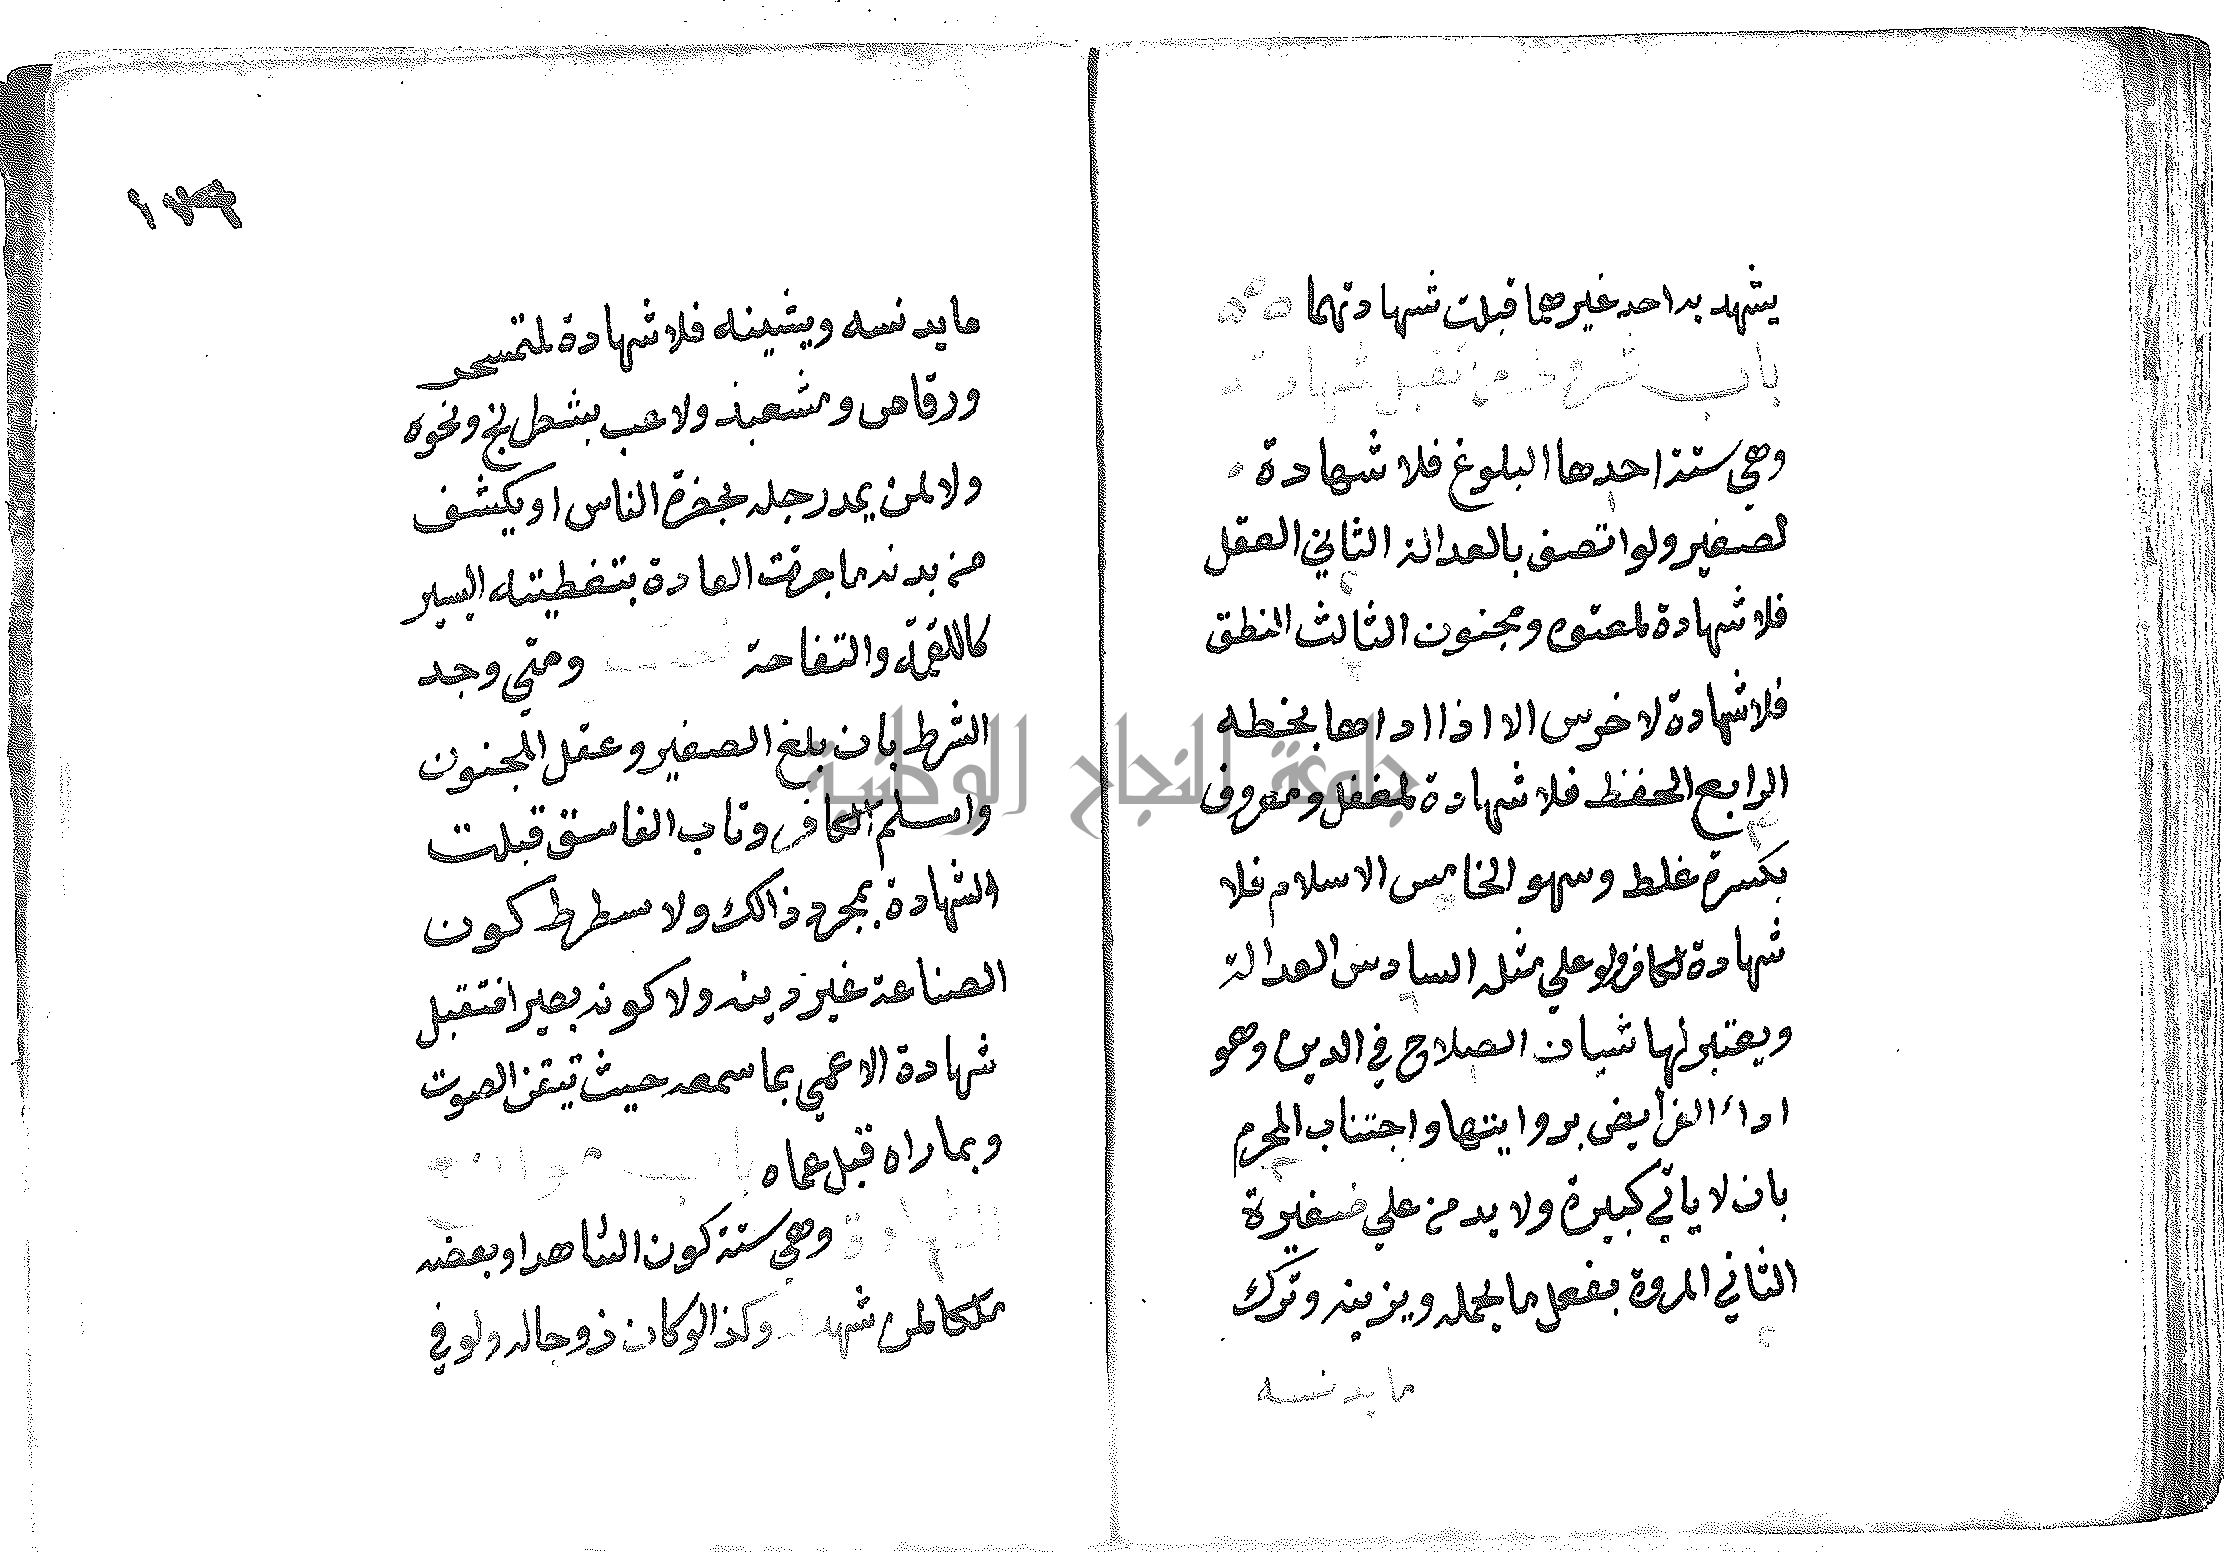 يشهد به احد غيرهما قبلت شهادتهما
باب شروط من تقبل شهادته
وهي ستة احدها البلوغ فلا شهادة
لصغير ولو اتصف بالعدالة الثاني العقل
فلا شهادة لمعتوه ومجنون الثالث النطق
فلا شهادة لاخرس الا اذا اداها بخطه
الرابع الحفظ فلا شهادة لمغفل ومعروف
بكثرة غلط وسهو الخامس الاسلام فلا
شهادة لكافر ولو علي مثله السادس العدالة
ويعتبر لها شيان الصلاح في الدين وهو
اداء الفرايض برواتبها واجتناب المحرم
بان لا ياتي كبيرة ولا يدمن علي صغيرة
الثاني المروة بفعل ما يجمله ويزينه وترك
ما يدنسه
١٧٦
ما يدنسه ويشينه فلا شهادة لمتمسخر
ورقاص ومشعبذ ولاعب بشطرنج ونحوه
ولا لمن يمد رجله بحضرة الناس او يكشف
من بدنه ما جرت العادة بتغطيته اليسير
كاللقمة والتفاحة ومتي وجد
الشرط بان بلغ الصغير وعقل المجنون
واسلم الكافر وتاب الفاسق قبلت
الشهادة بمجرد ذالك ولا يشترط كون
الصناعة غير دينه ولا كونه بصيرا فتقبل
شهادة الاعمي بما سمعه حيث تيقن الصوت
وبما راه قبل عماه باب موانع
الشهادة وهي ستة كون الشاهد او بعضه
ملكا لمن شهد له وكذا لو كان زوجا له ولو في
جامعة النجاح الوطنية